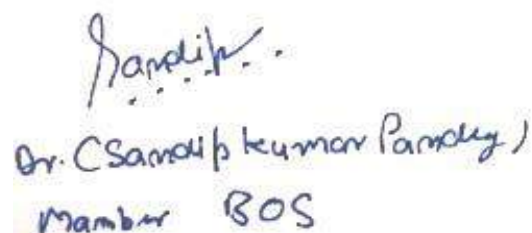 Sandip
Dr. (Sandip kumar Pandey)
Mamber BOS